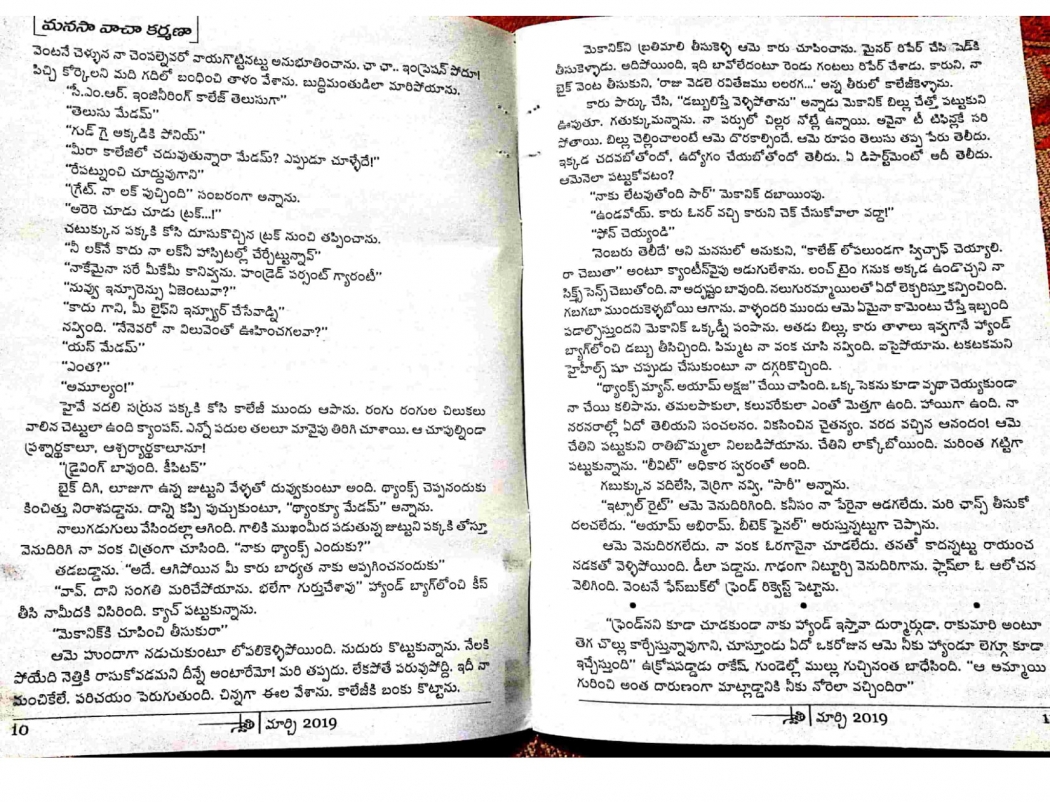 మనసా వాచా కర్మణా
వెంటనే చెళ్ళున నా చెంపల్నెవరో వాయగొట్టినట్టు అనుభూతించాను. ఛా ఛా.. ఇంప్రెషన్ పోదూ!
పిచ్చి కోర్కెలని మది గదిలో బంధించి తాళం వేశాను. బుద్ధిమంతుడిలా మారిపోయాను.
“సీ.ఎం.ఆర్. ఇంజినీరింగ్ కాలేజ్ తెలుసుగా”
“తెలుసు మేడమ్”
“గుడ్ గై అక్కడికి పోనియ్”
“మీరా కాలేజిలో చదువుతున్నారా మేడమ్? ఎప్పుడూ చూళ్ళేదే!”
“రేపట్నుంచి చూద్దువుగాని”
“గ్రేట్. నా లక్ పుచ్చింది” సంబరంగా అన్నాను.
“అరెరె చూడు చూడు ట్రక్...!”
చటుక్కున పక్కకి కోసి దూసుకొచ్చిన ట్రక్ నుంచి తప్పించాను.
“నీ లక్‌నే కాదు నా లక్‌నీ హాస్పిటల్లో చేర్చేట్టున్నావ్”
“నాకేమైనా సరే మీకేమీ కానివ్వను. హండ్రెడ్ పర్సంట్ గ్యారంటీ”
“నువ్వు ఇన్సూరెన్సు ఏజెంటువా?”
“కాదు గాని, మీ లైఫ్‌ని ఇన్స్యూర్ చేసేవాడ్ని”
నవ్వింది. “నేనెవరో నా నిలువెంతో ఊహించగలవా?”
“యస్ మేడమ్”
“ఎంత?”
“అమూల్యం!”
హైవే వదలి సర్రున పక్కకి కోసి కాలేజీ ముందు ఆపాను. రంగు రంగుల చిలుకలు
వాలిన చెట్టులా ఉంది క్యాంపస్. ఎన్నో పదుల తలలూ మావైపు తిరిగి చూశాయి. ఆ చూపుల్నిండా
ప్రశ్నార్థకాలూ, ఆశ్చర్యార్థకాలూనూ!
“డ్రైవింగ్ బావుంది. కీపిటప్”
బైక్ దిగి, లూజుగా ఉన్న జుట్టుని వేళ్ళతో దువ్వుకుంటూ అంది. థ్యాంక్స్ చెప్పనందుకు
కించిత్తు నిరాశపడ్డాను. దాన్ని కప్పి పుచ్చుకుంటూ, “థ్యాంక్యూ మేడమ్” అన్నాను.
నాలుగడుగులు వేసిందల్లా ఆగింది. గాలికి ముఖంమీద పడుతున్న జుట్టుని పక్కకి తోస్తూ
వెనుదిరిగి నా వంక చిత్రంగా చూసింది. “నాకు థ్యాంక్స్ ఎందుకు?”
తడబడ్డాను. “అదే. ఆగిపోయిన మీ కారు బాధ్యత నాకు అప్పగించనందుకు”
“వావ్. దాని సంగతి మరిచేపోయాను. భలేగా గుర్తుచేశావు” హ్యాండ్ బ్యాగ్‌లోంచి కీస్
తీసి నామీదకి విసిరింది. క్యాచ్ పట్టుకున్నాను.
“మెకానిక్‌కి చూపించి తీసుకురా”
ఆమె హుందాగా నడుచుకుంటూ లోపలికెళ్ళిపోయింది. నుదురు కొట్టుకున్నాను. నేలకి
పోయేది నెత్తికి రాసుకోవడమని దీన్నే అంటారేమో! మరి తప్పదు. లేకపోతే పరువుపోద్ది. ఇదీ నా
మంచికేలే. పరిచయం పెరుగుతుంది. చిన్నగా ఈల వేశాను. కాలేజీకి బంకు కొట్టాను.
10
స్వాతి మార్చి 2019
మెకానిక్‌ని బ్రతిమాలి తీసుకెళ్ళి ఆమె కారు చూపించాను. మైనర్ రిపేర్ చేసి షెడ్‌కి
తీసుకెళ్ళాడు. అదిపోయింది, ఇది బావోలేదంటూ రెండు గంటలు రిపేర్ చేశాడు. కారుని, నా
బైక్ వెంట తీసుకుని, ‘రాజు వెడలె రవితేజము లలరగ...’ అన్న తీరులో కాలేజ్‌కెళ్ళాను.
కారు పార్కు చేసి, “డబ్బులిస్తే వెళ్ళిపోతాను” అన్నాడు మెకానిక్ బిల్లు చేత్తో పట్టుకుని
ఊపుతూ. గతుక్కుమన్నాను. నా పర్సులో చిల్లర నోట్లే ఉన్నాయి. అవైనా టీ టిఫిన్లకే సరి
పోతాయి. బిల్లు చెల్లించాలంటే ఆమె దొరకాల్సిందే. ఆమె రూపం తెలుసు తప్ప పేరు తెలీదు.
ఇక్కడ చదవబోతోందో, ఉద్యోగం చేయబోతోందో తెలీదు. ఏ డిపార్ట్‌మెంటో అదీ తెలీదు.
ఆమెనెలా పట్టుకోవటం?
“నాకు లేటవుతోంది సార్” మెకానిక్ దబాయింపు.
“ఉండవోయ్. కారు ఓనర్ వచ్చి కారుని చెక్ చేసుకోవాలా వద్దా!”
“ఫోన్ చెయ్యండి”
‘నెంబరు తెలీదే’ అని మనసులో అనుకుని, “కాలేజ్ లోపలుండగా స్విచ్ఛాఫ్ చెయ్యాలి.
రా చెబుతా” అంటూ క్యాంటీన్‌వైపు అడుగులేశాను. లంచ్ టైం గనుక అక్కడ ఉండొచ్చని నా
సిక్స్త్ సెన్స్ చెబుతోంది. నా అదృష్టం బావుంది. నలుగురమ్మాయిలతో ఏదో లెక్చరిస్తూ కన్పించింది.
గబగబా ముందుకెళ్ళబోయి ఆగాను. వాళ్ళందరి ముందు ఆమె ఏమైనా కామెంటు చేస్తే ఇబ్బంది
పడాల్సొస్తుందని మెకానిక్ ఒక్కడ్నీ పంపాను. అతడు బిల్లు, కారు తాళాలు ఇవ్వగానే హ్యాండ్
బ్యాగ్‌లోంచి డబ్బు తీసిచ్చింది. పిమ్మట నా వంక చూసి నవ్వింది. ఐసైపోయాను. టకటకమని
హైహీల్స్ షూ చప్పుడు చేసుకుంటూ నా దగ్గరికొచ్చింది.
“థ్యాంక్స్ మ్యాన్. అయామ్ అక్షజ” చేయి చాపింది. ఒక్క సెకను కూడా వృథా చెయ్యకుండా
నా చేయి కలిపాను. తమలపాకులా, కలువరేకులా ఎంతో మెత్తగా ఉంది. హాయిగా ఉంది. నా
నరనరాల్లో ఏదో తెలియని సంచలనం. వికసించిన చైతన్యం. వరద వచ్చిన ఆనందం! ఆమె
చేతిని పట్టుకుని రాతిబొమ్మలా నిలబడిపోయాను. చేతిని లాక్కోబోయింది. మరింత గట్టిగా
పట్టుకున్నాను. “లీవిట్” అధికార స్వరంతో అంది.
గబుక్కున వదిలేసి, వెర్రిగా నవ్వి, “సారీ” అన్నాను.
“ఇట్సాల్ రైట్” ఆమె వెనుదిరిగింది. కనీసం నా పేరైనా అడగలేదు. మరి ఛాన్స్ తీసుకో
దలచలేదు. “అయామ్ అభిరామ్. బీటెక్ ఫైనల్” అరుస్తున్నట్టుగా చెప్పాను.
ఆమె వెనుదిరగలేదు. నా వంక ఓరగానైనా చూడలేదు. తనతో కాదన్నట్టు రాయంచ
నడకతో వెళ్ళిపోయింది. డీలా పడ్డాను. గాఢంగా నిట్టూర్చి వెనుదిరిగాను. ఫ్లాష్‌లా ఓ ఆలోచన
వెలిగింది. వెంటనే ఫేస్‌బుక్‌లో ఫ్రెండ్ రిక్వెస్ట్ పెట్టాను.
• • •
“ఫ్రెండ్‌నని కూడా చూడకుండా నాకు హ్యాండ్ ఇస్తావా దుర్మార్గుడా. రాకుమారి అంటూ
తెగ చొల్లు కార్చేస్తున్నావుగాని, చూస్తూండు ఏదో ఒకరోజున ఆమె నీకు హ్యాండూ లెగ్గూ కూడా
ఇచ్చేస్తుంది” ఉక్రోషపడ్డాడు రాకేష్. గుండెల్లో ముల్లు గుచ్చినంత బాధేసింది. “ఆ అమ్మాయి
గురించి అంత దారుణంగా మాట్లాడ్డానికి నీకు నోరెలా వచ్చిందిరా”
స్వాతి మార్చి 2019